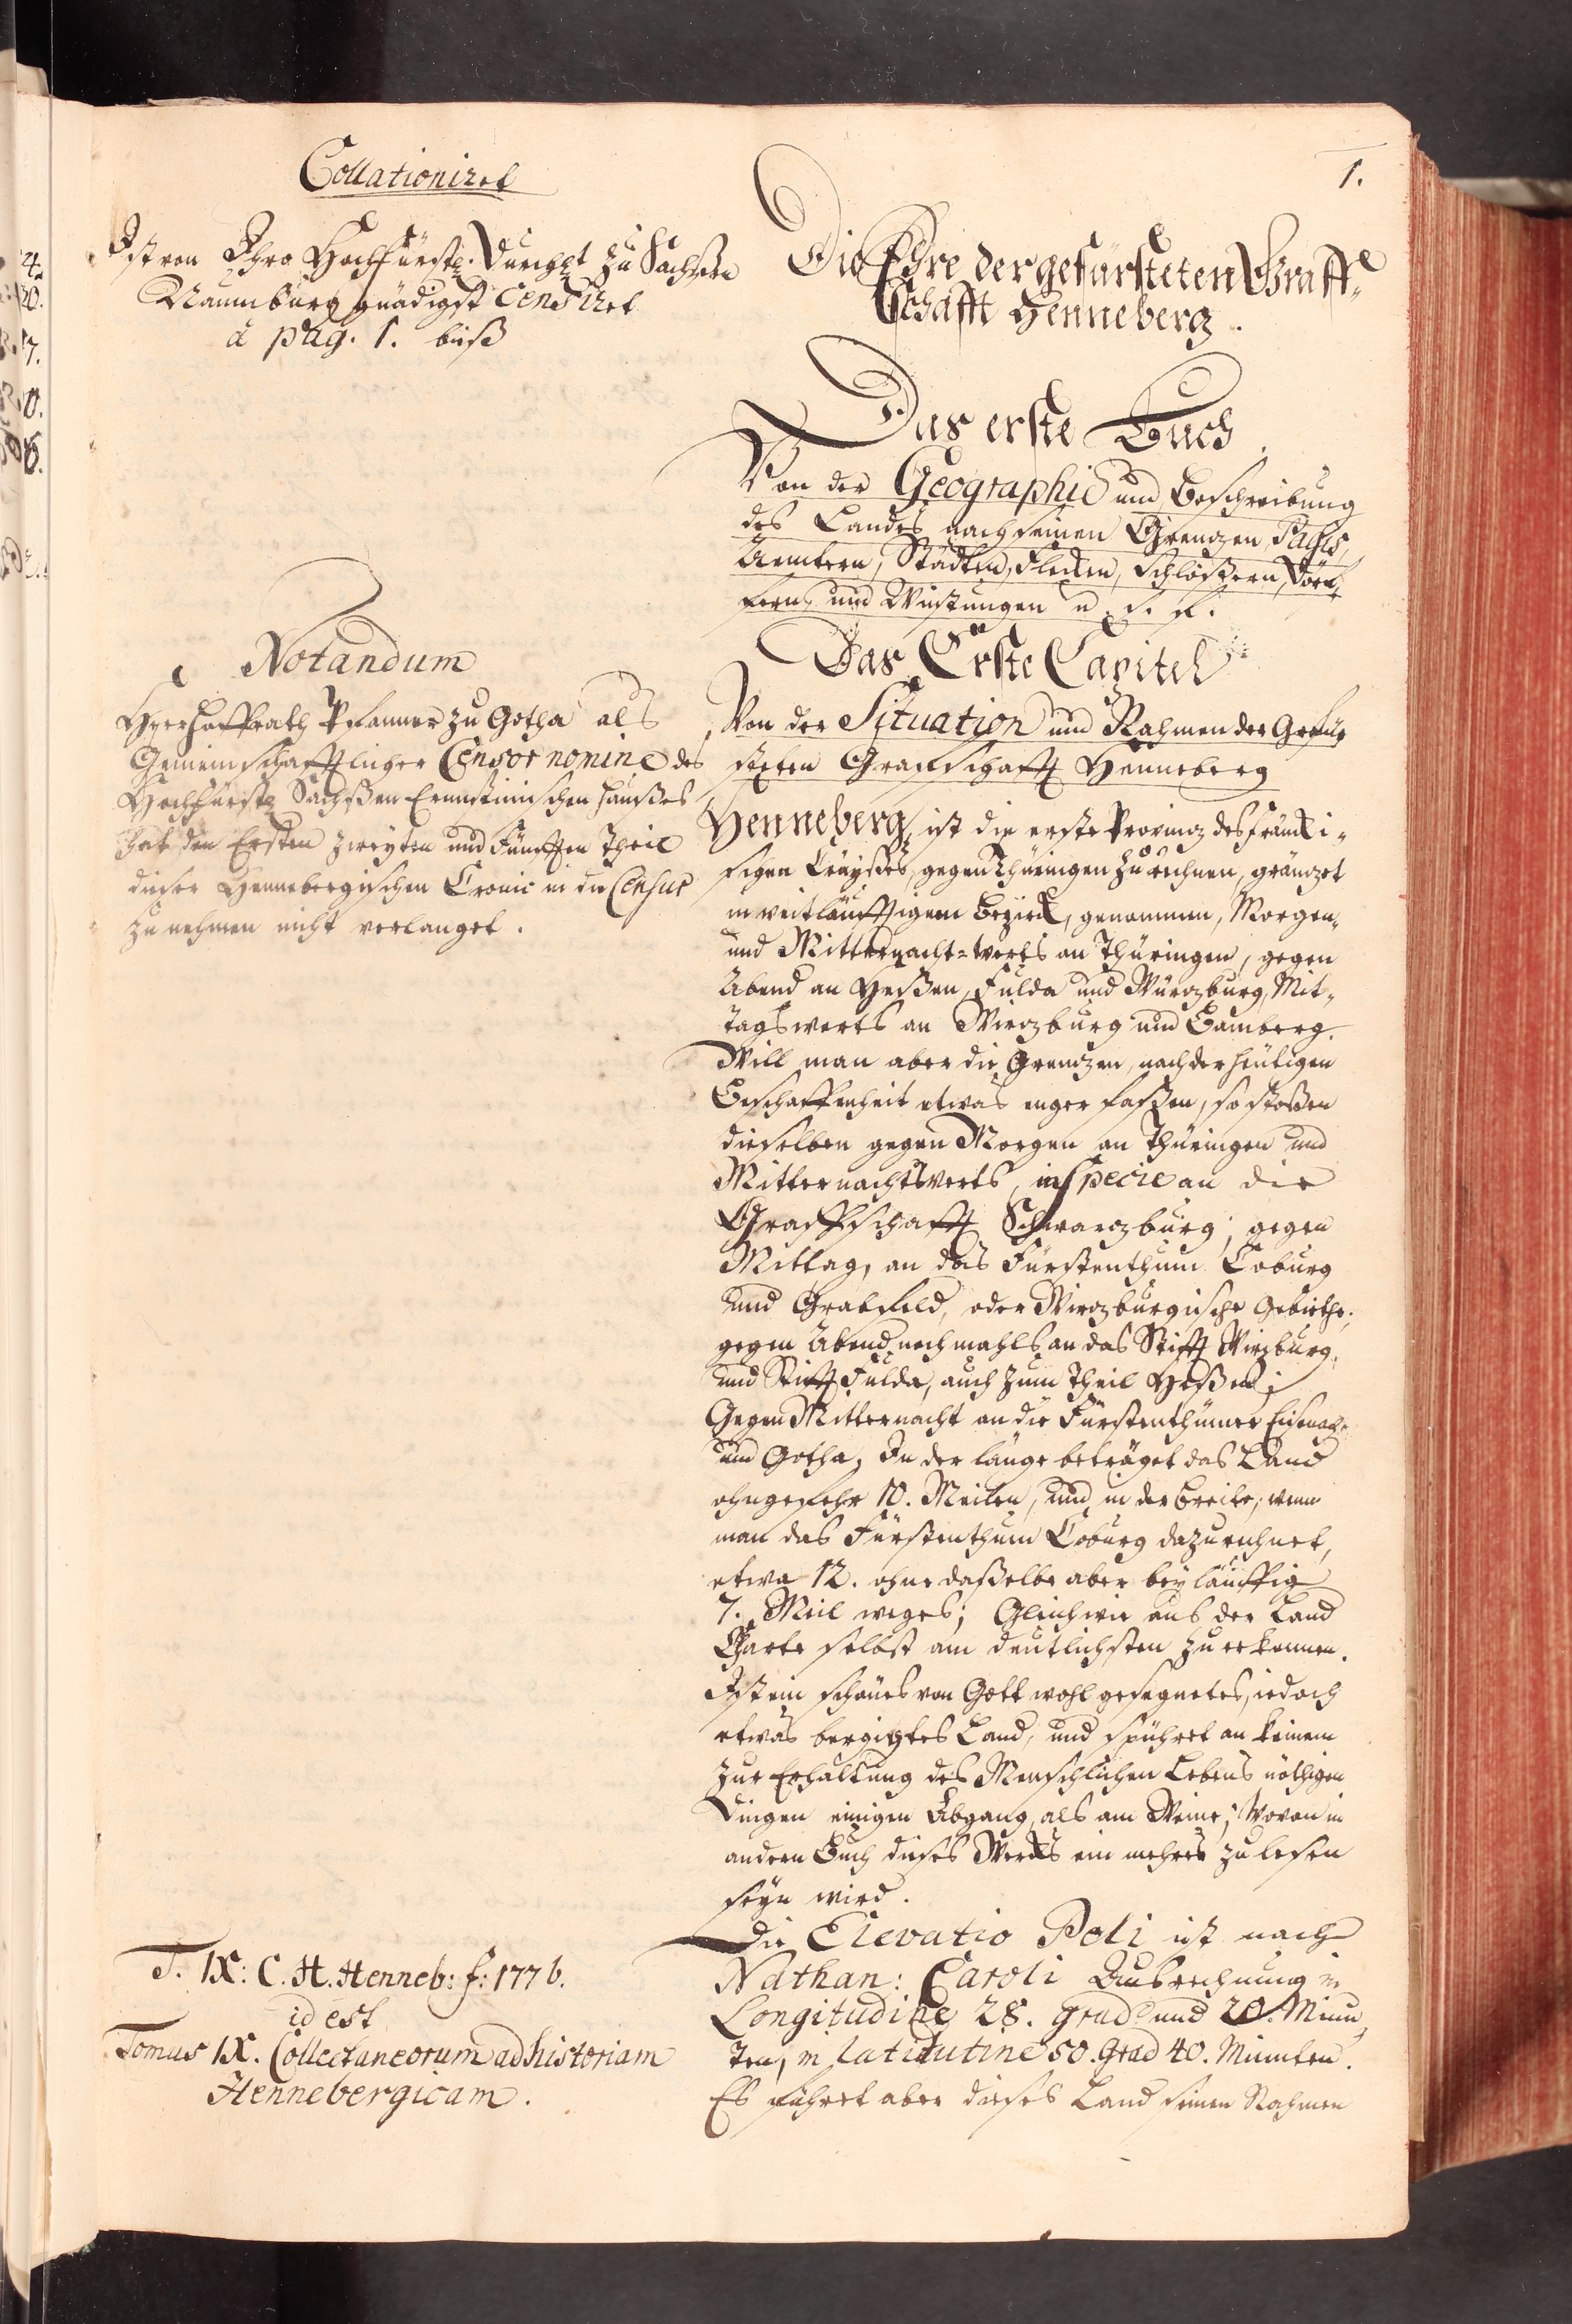 1.
Collationiret
Ist von Ihro Hochfürstl. Durchlt zu Sachßen
Naumburg gnädigst Censiret
à pag. 1. biß
Die Ehre der gefürsteten Graff-
schafft Henneberg.
Das erste Buch
Von der Geographie und Beschreibung
des Landes nach seinen Grenzen, Pagis,
Aemtern, Städten, Flecken, Schlößern, Dörf-
fern und Wüstungen u. s. f.
Das Erste Capitel
Von der Situation und Nahmen der Gefür-
steten Graffschafft Henneberg
Notandum
Herr Hoffrath Pfanner zu Gotha als
Gemeinschafftlicher Censor nomine des
Hochfürstl Sachßen Ernnstinischen Haußes
hat den Ersten Zweyten und Fünfften Theil
dieser Hennebergischen Cronic in die Censur
zu nehmen nicht verlanget.
Henneberg, ist die erste Provinz des Fräncki-
schen Creyßes, gegen Thüringen zu rechnen, gränzet
in weitläufftigem Bezirck, genommen, Morgen-
und Mitternacht-werts an Thüringen, gegen
Abend an Heßen, Fulda und Würzburg, Mit-
tagswerts an Wirzburg und Bamberg.
Will man aber die Grenzen, nach der heutigen
Beschaffenheit etwas enger faßen, so stoßen
dieselben gegen Morgen an Thüringen und
Mitternachtswerts, in specie an die
Graffschafft Schwarzburg; gegen
Mittag, an das Fürstenthum Coburg
und Grabfeld, oder Wirzburgische Gebiethe;
gegen Abend nochmahls an das Stifft Wirzburg,
und Stifft Fulda, auch zum Theil Heßen;
Gegen Mitternacht an die Fürstenthümer Eisenach
und Gotha, In der länge beträget das Land
ohngefehr 10. Meilen, und in der Breite, wenn
man das Fürstenthum Coburg dazu rechnet,
etwa 12. ohne daßelbe aber beyläuffig
7. Meil weges; Gleichwie aus der Land
Charte selbst am deutlichsten zu erkennen.
Ist ein schönes von Gott wohl gesegnetes, iedoch
etwas bergigtes Land, und spühret an keinem
zur Erhaltung des Menschlichen Lebens nöthigen
Dingen einigen Abgang, als am Weine; Wovon in
andern Buch dieses Wercks ein mehrers zu lesen
seyn wird.
Die Elevatio Poli ist nach
Nathan: Caroli Ausrechnung in
Longitudine 28. Grad und 20. Minu-
ten, in latitutine 50. Grad 40. Minuten.
Es führet aber dieses Land seinen Nahmen
T. IX: C. H. Henneb: f: 177 b.
id est
Tomus IX. Collectaneorum ad historiam
Hennebergicam.